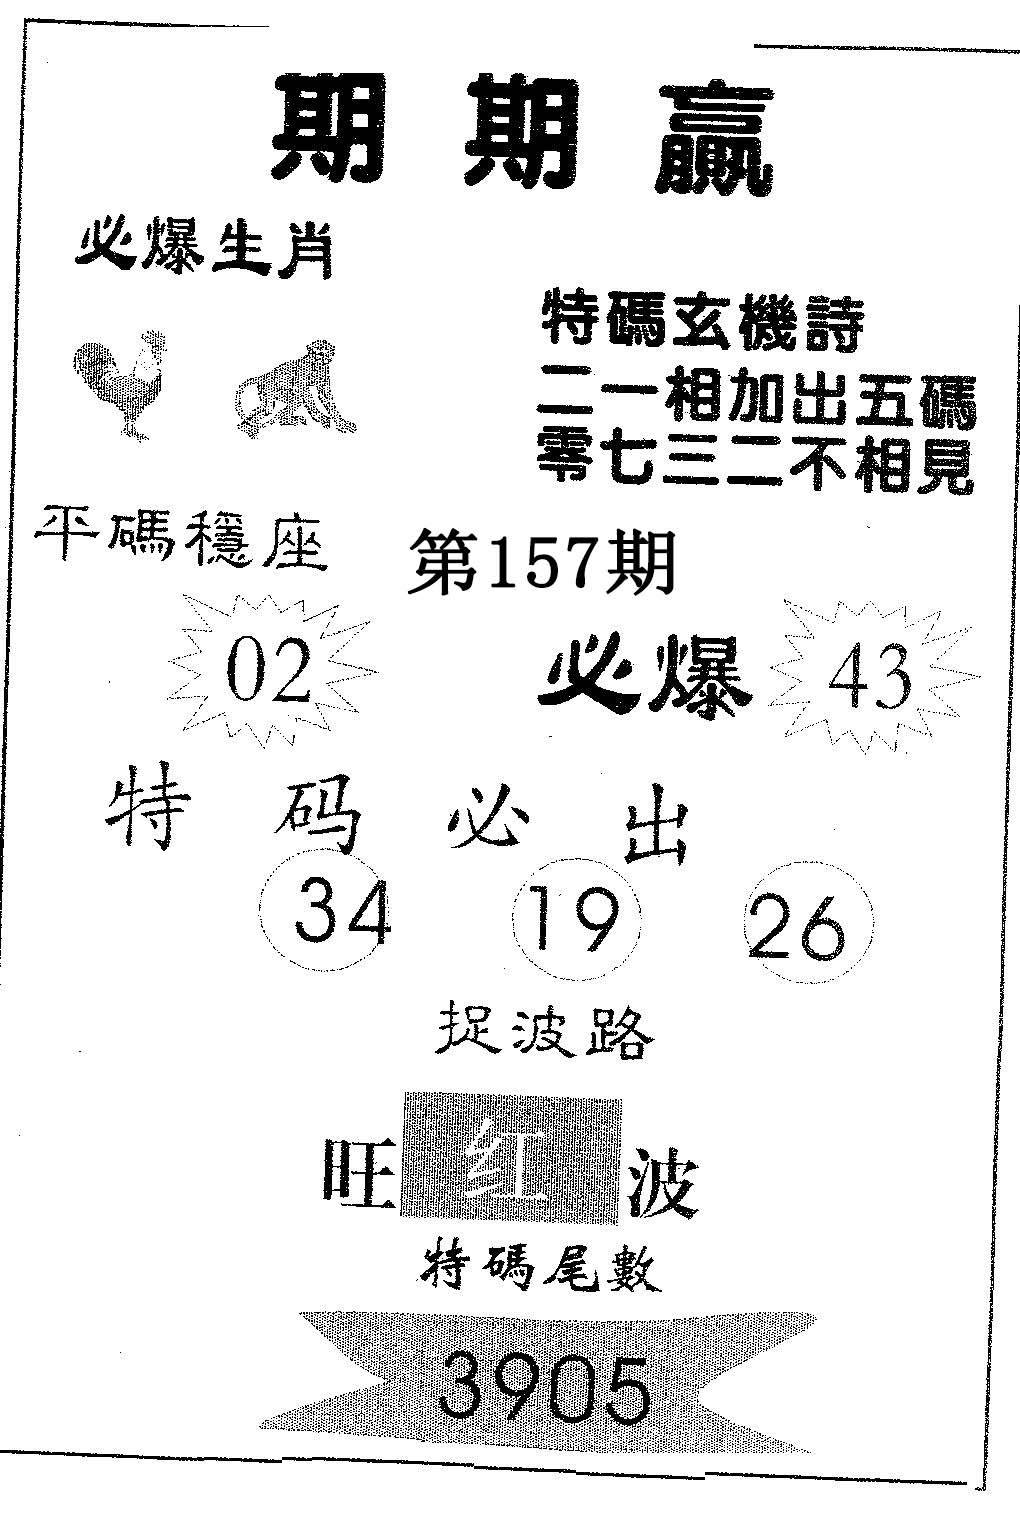 期期贏
必爆生肖
特碼玄機詩
二一相加出五碼
零七三二不相見
平碼穩座
第157期
02
必爆
43
特码必出
34 19 26
捉波路
旺红波
特碼尾數
3905